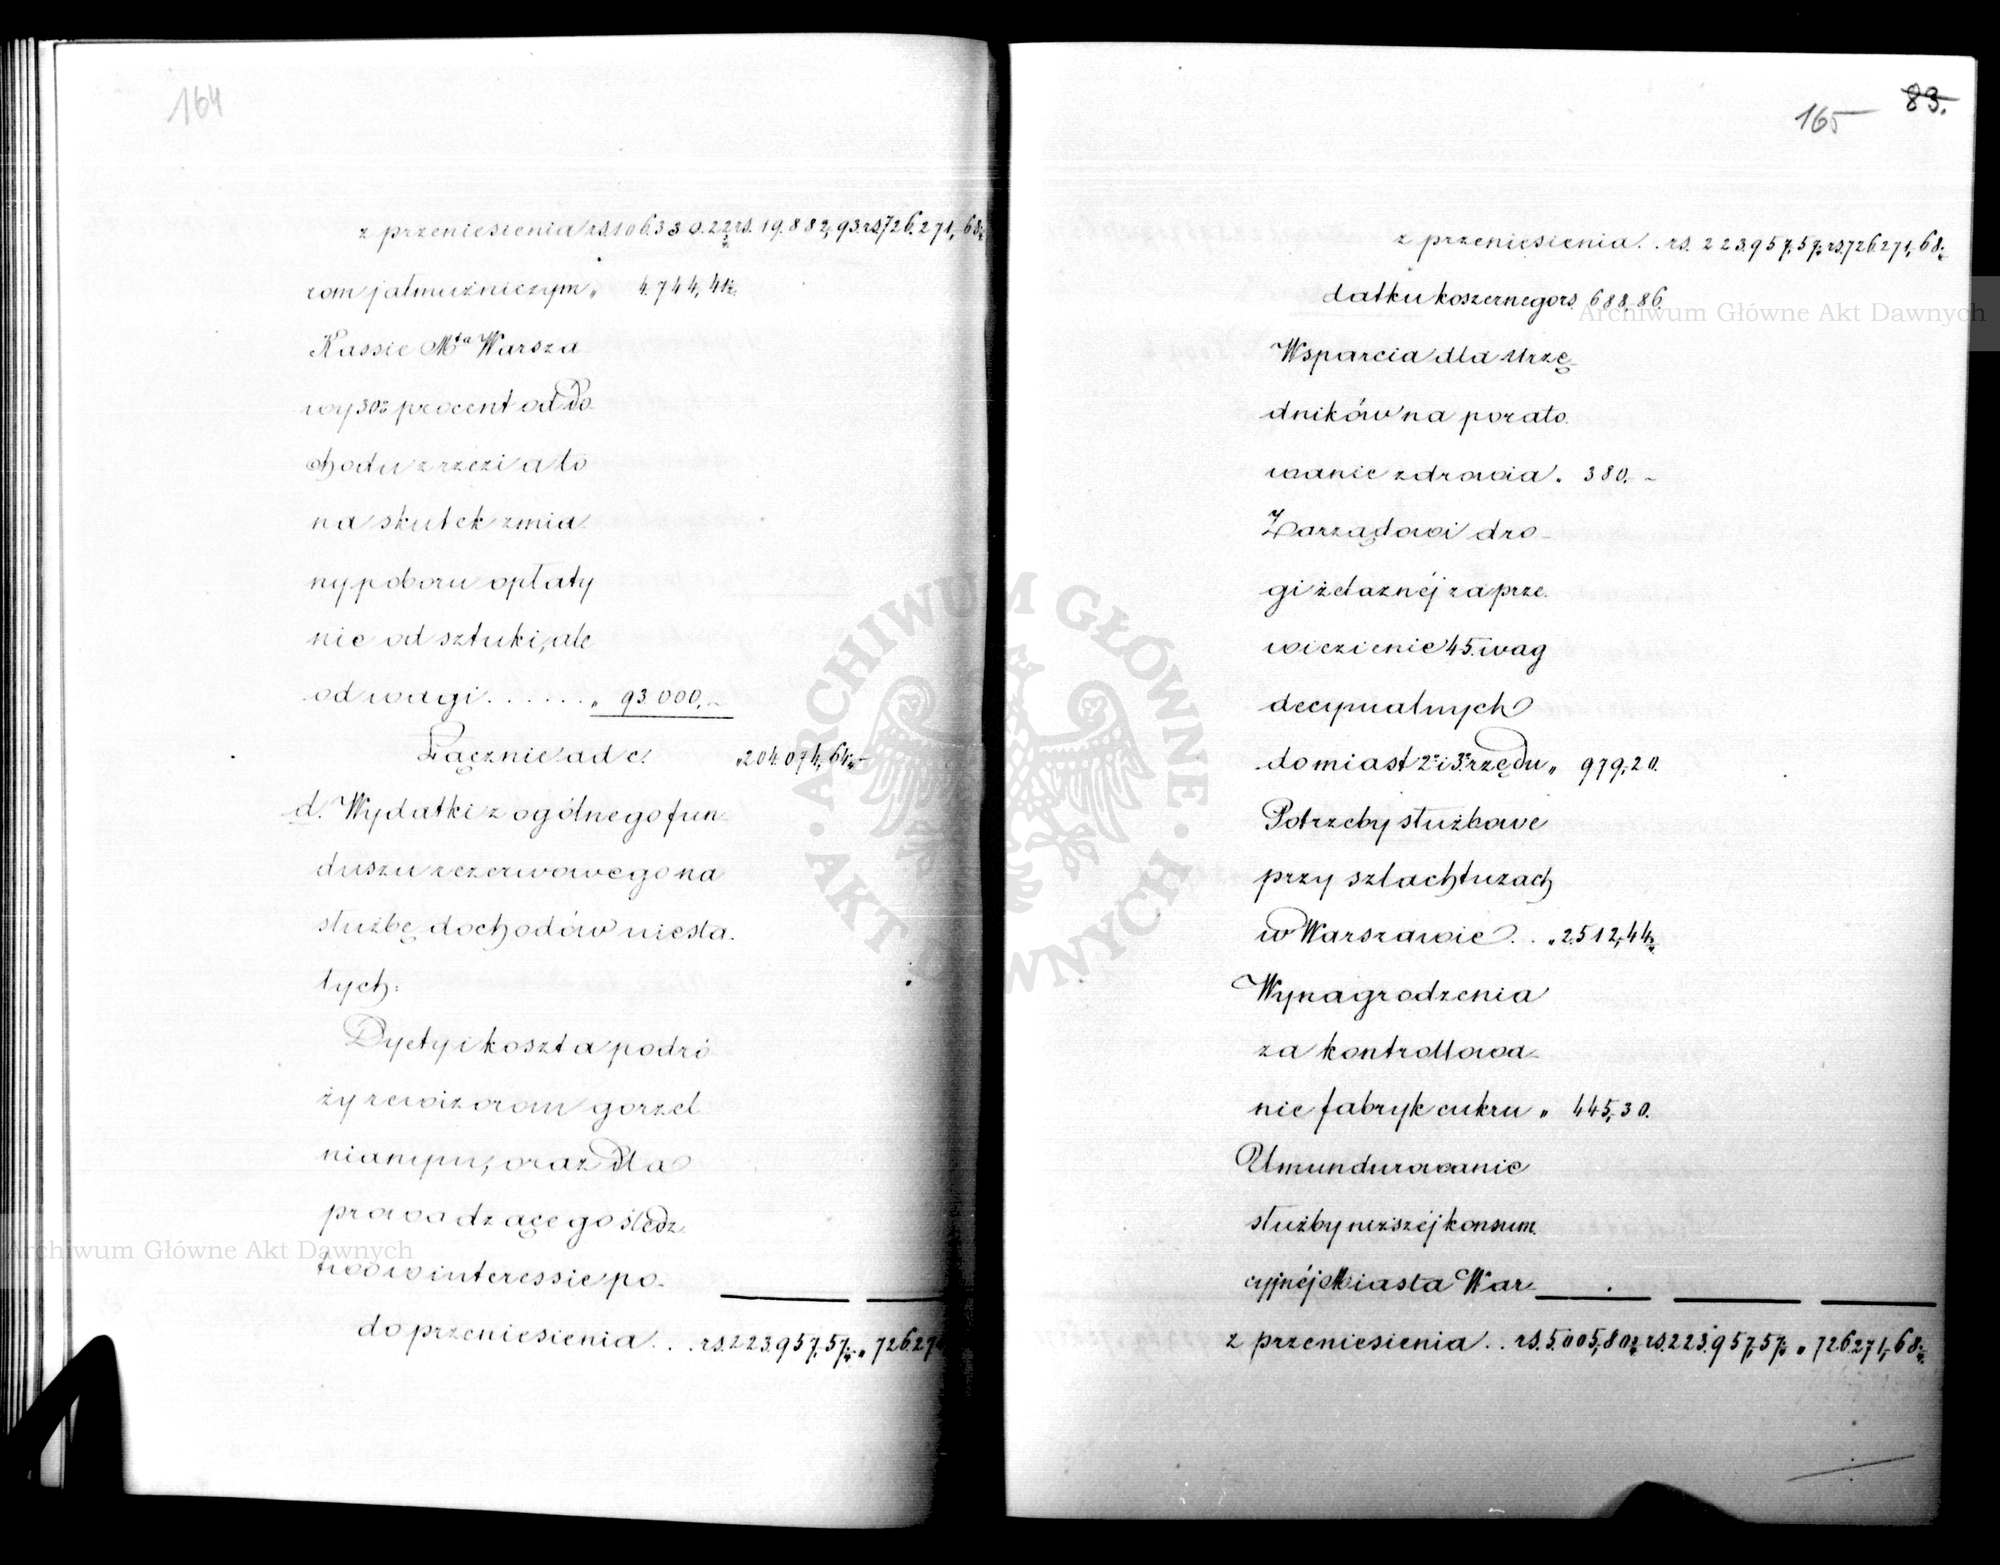 164
z przeniesienia rs. 106.330.22 rs. 19.882,93. rs. 726.271,68
rom jałmużniczym „ 4.744,41
Kassie Mta Warsza
wy 30% procent od do
chodu z rzezi a to
na skutek zmia
ny poboru opłaty
nie od sztuki, ale
od wagi . . . . . . „ 93.000,–
Łącznie ad c. „ 204.074,64
d. Wydatki z ogólnego fun
duszu rezerwowego na
służbę dochodów niesta.
łych:
Dyety i koszta podró
ży rewizorom gorzel
nianym, oraz dla
prowadzącego śledz
two w interessie po-
do przeniesienia . . . rs. 223.957,57 „ 726.271
165 83.
z przeniesienia . . rs. 223.957,57 rs. 726.271,68
datku koszernego rs. 688,86.
Wsparcia dla urzę-
dników na porato.
wanie zdrowia „ 380.–
Zarządowi dro-
gi żelaznéj za prze.
wiezienie 45. wag
decymalnych
do miast 2o i 3o rzędu „ 979,20.
Potrzeby służbowe
przy szlachtuzach
w Warszawie . . „ 2.512,44
Wynagrodzenia
za kontrollowa-
nie fabryk cukru „ 445,30.
Umundurowanie
służby niższéj konsum.
cyjnéj Miasta War-
z przeniesienia . . rs. 5.005,80 rs. 223.957,57 „ 726.271,68
Archiwum Główne Akt Dawnych
Archiwum Główne Akt Dawnych
ARCHIWUM GŁÓWNE
· AKT DAWNYCH ·